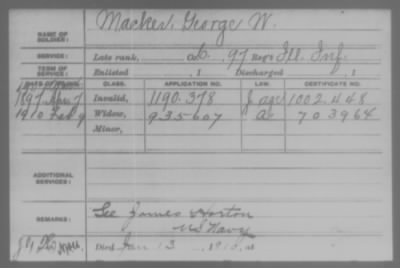 Macker, George W.
NAME OF SOLDIER:
SERVICE: Late rank, Co. 97 Reg't Ill. Inf.
TERM OF SERVICE: Enlisted , 1 Discharged , 1
DATE OF FILING. CLASS. APPLICATION NO. LAW. CERTIFICATE NO.
1897 Invalid, 1190.378 1002.448
1910 Feb 9 Widow, 935.607 703964
Minor,
ADDITIONAL SERVICES:
REMARKS: See James Horton
U S Navy
Died Jan 13 , at